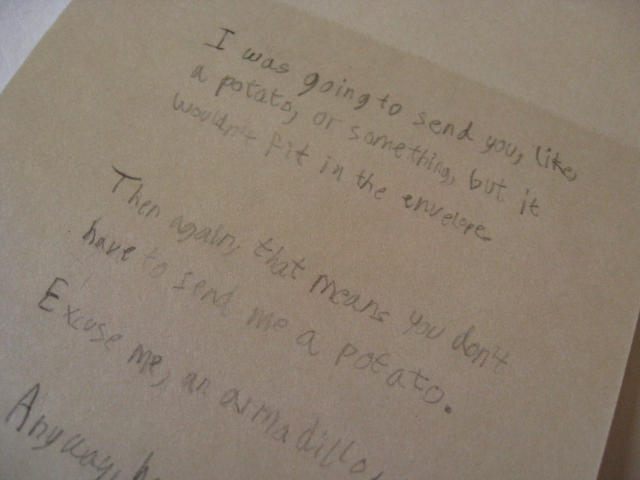 I was going to send you, like,
a potato, or something, but it
wouldn't fit in the envelope
Then again, that means you don't
have to send me a potato.
Excuse me, an armadillo,
Anyway,